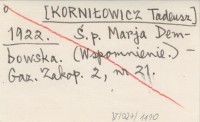 [KORNIŁOWICZ Tadeusz]
1922. Ś.p. Marja Dem-
bowska. (Wspomnienie.) -
Gaz. Zakop. 2, nr 21.